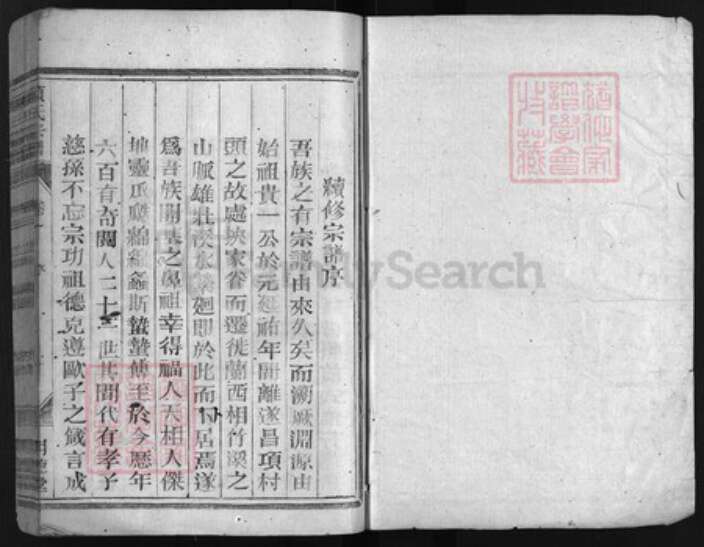 續修宗譜序
吾族之有宗譜由來久矣而溯厥淵源由
始祖貴一公於元延祐年間離遂昌項村
頭之故處挾家眷而遷徙蘭西相竹溪之
山脈雄壯溪水縈廻即於此而卜居焉遂
爲吾族開基之鼻祖幸得福人天相人傑
地靈瓜瓞綿綿螽斯蟄蟄傳至於今歷年
六百有奇閱人二十三世其間代有孝子
慈孫不忘宗功祖德克遵歐子之箴言成
譜學會
收藏
FamilySearch